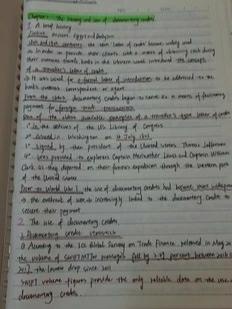 Chapter 1: The history and use of documentary credits
1. A brief history
Earliest: ancient Egypt and Babylon
18th and 19th centuries: the term letter of credit became widely used
↳ in order to provide their clients with a means of obtaining cash during
their overseas travels, banks in the Western world introduced the concepts
of a traveller's letter of credit
↳ It was used as a formal letter of introduction to be addressed to the
bank's overseas correspondent or agent
From the 1840s documentary credits began to serve as a means of facilitating
payment for foreign trade transactions
One of the oldest available examples of a traveller's type letter of credit
• In the archives of the US Library of Congress
• issued in Washington on 4 July 1803
• signed by then president of the United States Thomas Jefferson
• was provided to explorers Captain Meriwether Lewis and Captain William
Clark as they departed on their famous expedition through the western part
of the United States
Prior to World War I, the use of documentary credits had become more widespread
→ the outbreak of war → increasingly linked to the documentary credits to
secure their payment
2. The use of documentary credits
1. Documentary credit statistics
According to the ICC Global Survey on Trade Finance released in May 20
the volume of SWIFT MT700 messages fell by
the largest drop since 2011
SWIFT volume figures provide the only reliable data on the use of
documentary credits